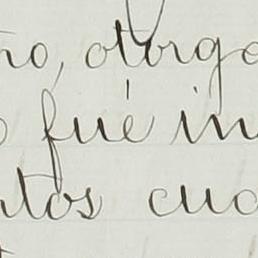 no, otorga
fué in
tos cua